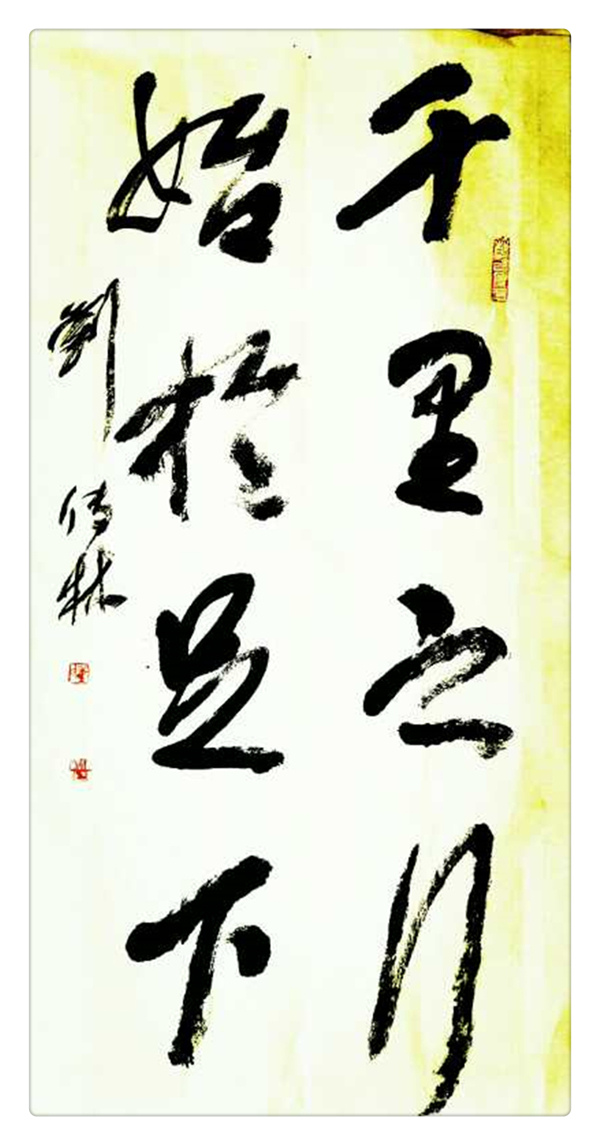 千里之行
始於足下
劉傳林